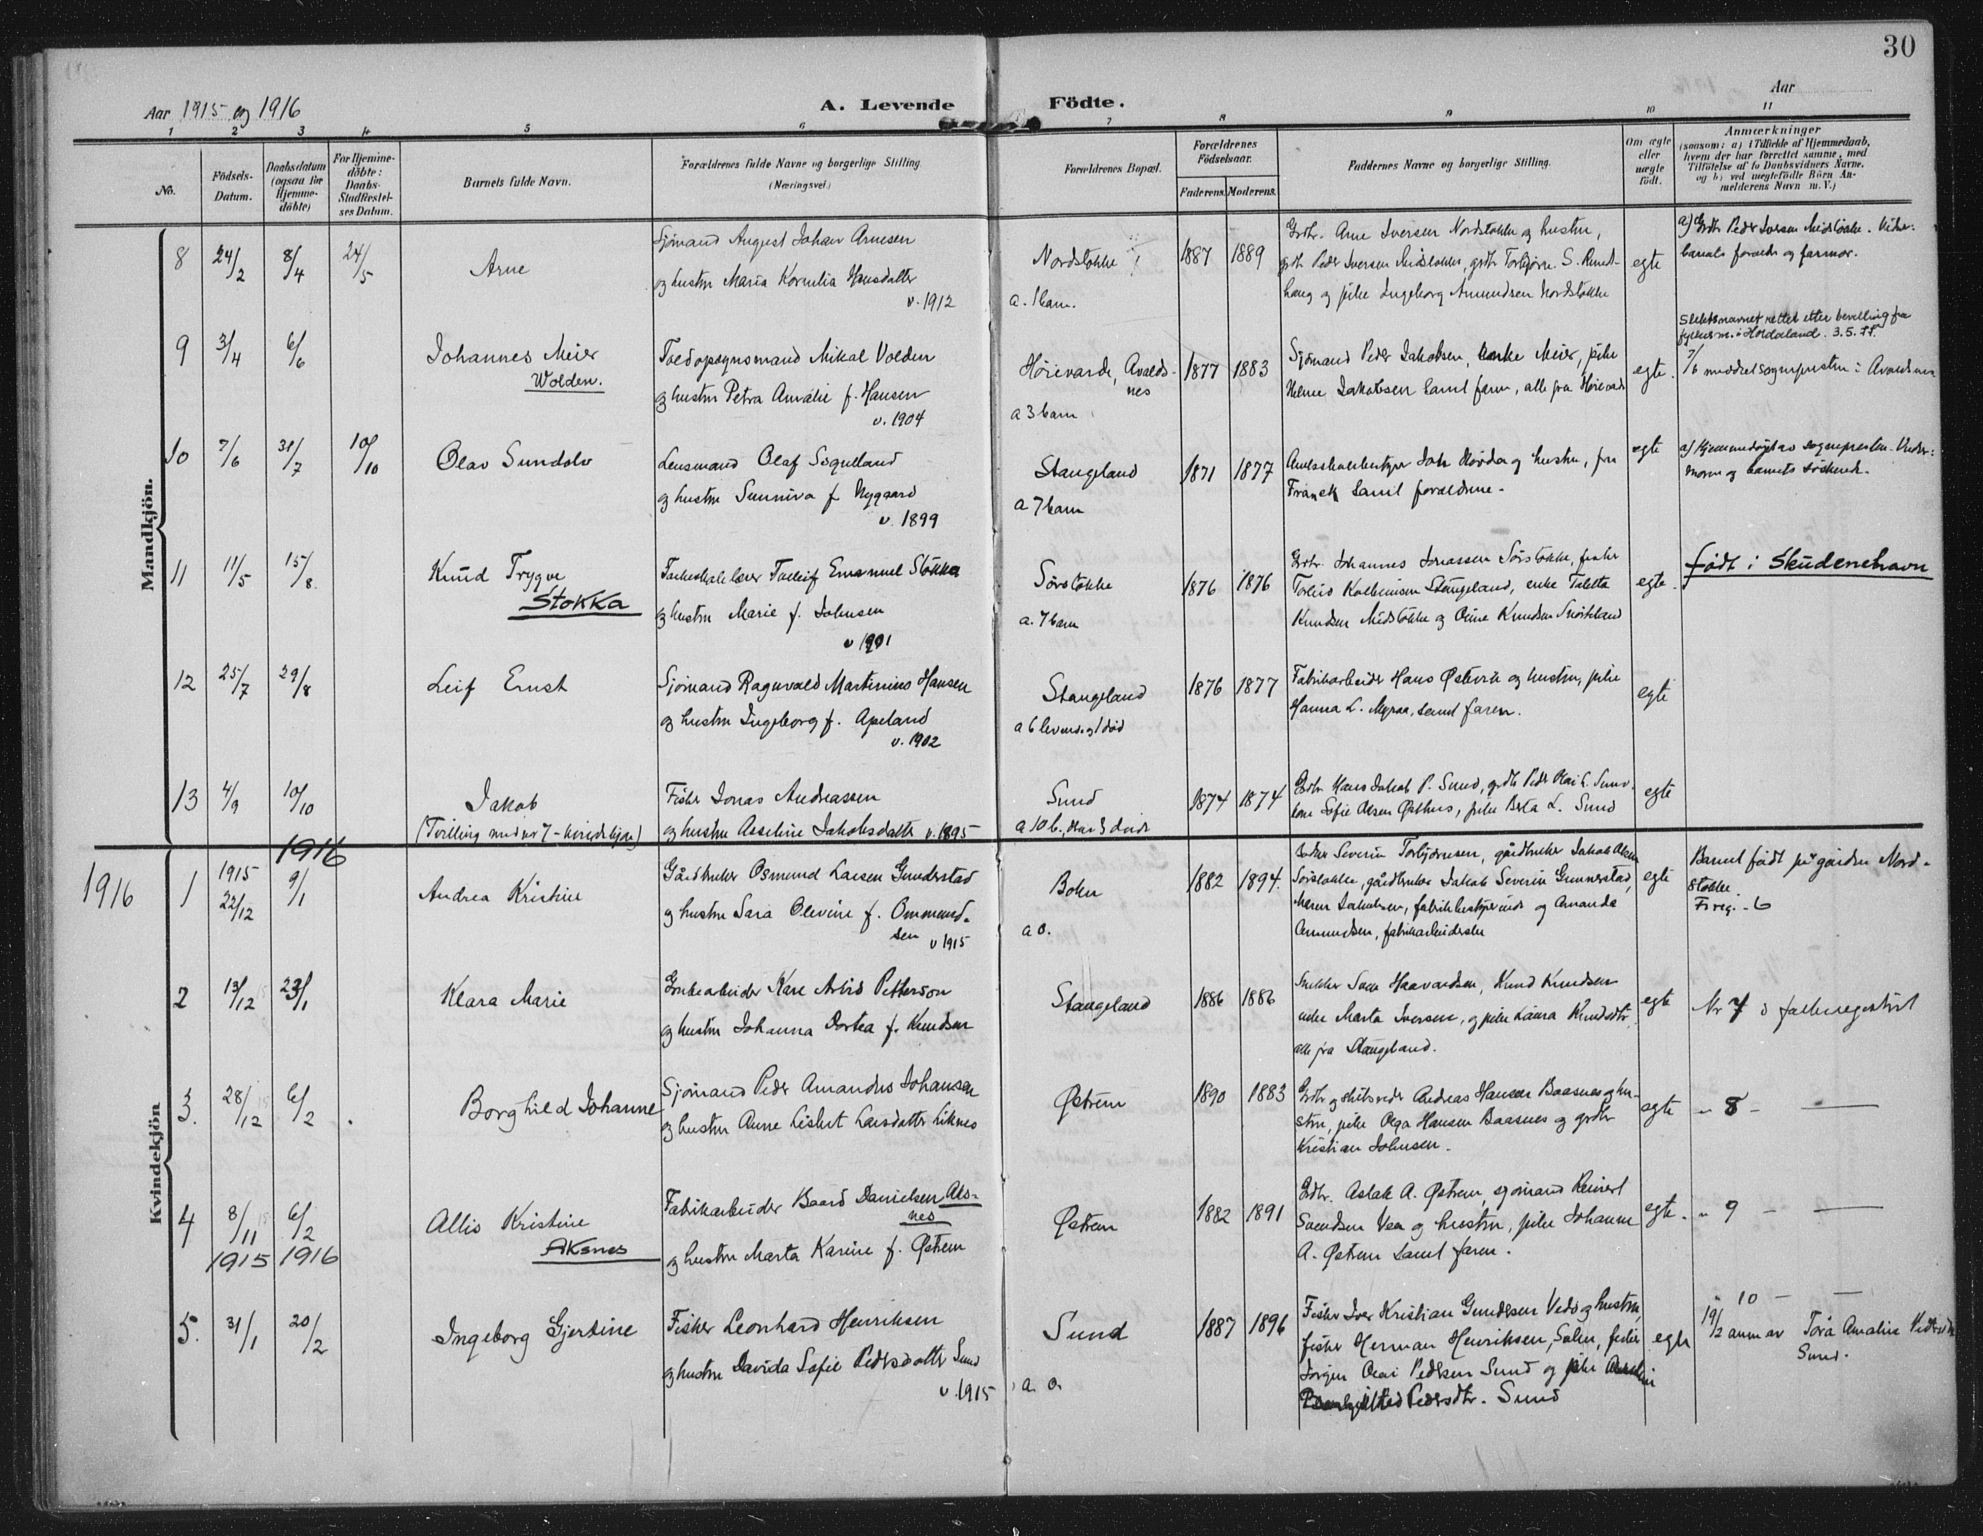 30
Aar 1915 og 1916
A. Levende Födte.
Aar
1 2 3 4 5 6 7 8 9 10 11
No.
Födsels-Datum.
Daabsdatum (ogsaa for Hjemme-döbte)
For Hjemme-döbte: Daabs-Stadfæstel-ses Datum.
Barnets fulde Navn.
Forældrenes fulde Navne og borgerlige Stilling.
(Næringsvei.)
Forældrenes Bopæl.
Forældrenes Födselsaar.
Faderens. Moderens.
Faddernes Navne og borgerlige Stilling.
Om ægte eller uægte født.
Anmærkninger
(saasom: a) i Tilfælde af Hjemmedaab,
hvem der har forrettet samme, med
Tilföielse af to Daabsvidners Navne,
og b) ved uægtefödte Börn An-
melderens Navn m. V.)
Mandkjön.
8 24/2 8/4 24/5 Arne
Sjømand August Johan Arnesen
og hustru Maria Kornelia Hansdatter
v. 1912
Nordstokke
a. 1 barn.
1887 1889
Grdbr. Arne Iversen Nordstokke og hustru,
grdbr Peder Iversen Midstokke, grdbr Torbjørn S.
haug og pike Ingeborg Amundsen Nordstokke
egte
a) Grdbr Peder Iversen Midstokke. Vidner:
barnets forældr og farmor.
9 3/4 6/6 Johannes Meier
Wolden.
Toldopsynsmand Mikal Volden
og hustru Petra Amalie f. Hansen
v. 1904
Høievarde, Avalds-
nes
a 3 barn
1877 1883
Sjømand Peder Jakobsen, enke Meier, pike
Helene Jakobsen samt faren, alle fra Høievarde
egte.
Slektsnavnet rettet etter bevilling fra
fylkesm. i Hordaland. 3.5.
7/6 meddelt sogneprsten i Avaldsnes
10 7/6 31/7 10/10 Olav Sundolv
Lensmand Olaf
og hustru Sunniva f Nygaard
v. 1899
Stangeland
a 7 barn
1871 1877
Joh og hustru, fru
Franck samt forældrene.
egte
a) Hjemmedøpt av sogneprsten. Vidner:
Moren og barnets søskende.
11 11/5 15/8. Knud Trygve
Stokka
Emanuel Stokka
og hustru Marie f. Johnsen
v 1901
Sørstokke
a. 7 barn
1876 1876
Grdbr. Johannes Jonassen Sørstokke, fisker
Stangeland, enke Taletta
Knudsen Midstokke og Knudsen
egte.
født i Skudeneshavn
12 25/7 29/8 Leif Ernst
Sjømand Ragnvald Martinius Hansen
og hustru Ingeborg f. Apeland
v. 1902
Stangeland
a 6 levende, 1 død
1876 1877
Fabrikarbeider Hans Østevik og hustru, pike
Hanna L. Myraa, samt faren.
egte
13 4/9 10/10 Jakob
(Tvilling med nr 7 - kvindeligkjøn)
Fisker Jonas Andreassen
og hustru Asseline Jakobsdatter v. 1895
Sund
a 10 b., døde
1874 1874
Grdbr Hans Jakob P. Sund, grdbr Peder Olai Sund
kone Sofie Olsen Østhus, pike Berta L. Sund
egte
1916
1916
Kvindekjön
1 1915 22/12 9/1 Andrea Kristine
Gårdbruker Osmund Larsen Gunderstad
og hustru Sara Olevine f. Ommund-
sen v 1915
Boken
a 0.
1882 1894.
Severin Torbjørnsen, gårdbruker Jakob
Sørstokke, gårdbruker Jakob Severin Gunnerstad,
Maren Jakobsen, og Amanda
Amundsen, fabrikarbeiderske
egte
Barnet født på gården Nord-
stokke.
F. reg. - 6
2 13/12 23/1 Klara Marie
Karl Arvid Petterson
og hustru Johanna Dortea f. Knudsen
Stangeland
1886 1886
Haavardsen, Knud Knudsen
enke Marta Iversen, og pike Laura Knudsdtr
alle fra Stangeland.
egte
Nr 7 i fællesregistret
3. 28/12 6/2 Borghild Johanne
Sjømand Peder Amandus Johansen
og hustru Anne Lisbet Larsdatter Liknes
Østrem
1890 1883
Grdbr og skibsreder Andreas Hansen Baasnes og hu-
stru, pike Olga Hansen Baasnes og grdbr
Kristian Johnsen.
egte
" 8 -
4 8/11 6/2 Allis Kristine
1915 1916
Aksnes
Fabrikarbeider Baard Danielsen Aks-
nes
og hustru Marta Karine f. Østrem
Østrem
1882 1891
Grdbr. Aslak A. Østrem, sjømand Reinert
Svendsen Vea og hustru, pike Johanne
A. Østrem samt faren.
egte.
" 9 -
5. 31/1 20/2 Ingeborg Gjertine
Fisker Leonhard Henriksen
og hustru Davida Sofie Pedersdatter Sund
v. 1915
Sund
a. 0.
1887 1896
Fisker Iver Kristian Gundersen Vedø og hustru,
fisker Herman Henriksen, Salen, fisker
Jørgen Olai Pedersen Sund og pike
Pedersdtr. Sund
egte
" 10 -
19/2 anm av Tora Amalie
Sund.